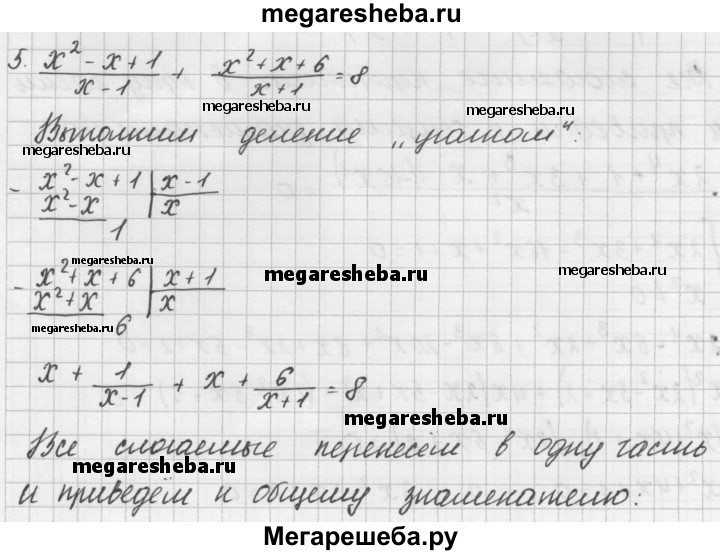 megaresheba.ru
5. (x² - x + 1)/(x - 1) + (x² + x + 6)/(x + 1) = 8
megaresheba.ru
megaresheba.ru
Выполним деление „уголком“:
megaresheba.ru
- x² - x + 1 | x - 1
x² - x | x
1
megaresheba.ru
megaresheba.ru
megaresheba.ru
megaresheba.ru
- x² + x + 6 | x + 1
x² + x | x
megaresheba.ru 6
x + 1/(x - 1) + x + 6/(x + 1) = 8
megaresheba.ru
Все слагаемые перенесём в одну часть
megaresheba.ru
и приведём к общему знаменателю:
Мегарешеба.ру